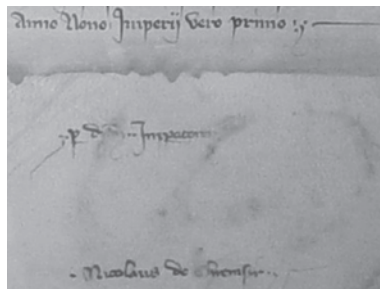 Anno Nono Imperij vero primo
p d Imperatorem
Nicolaus de Chremsir